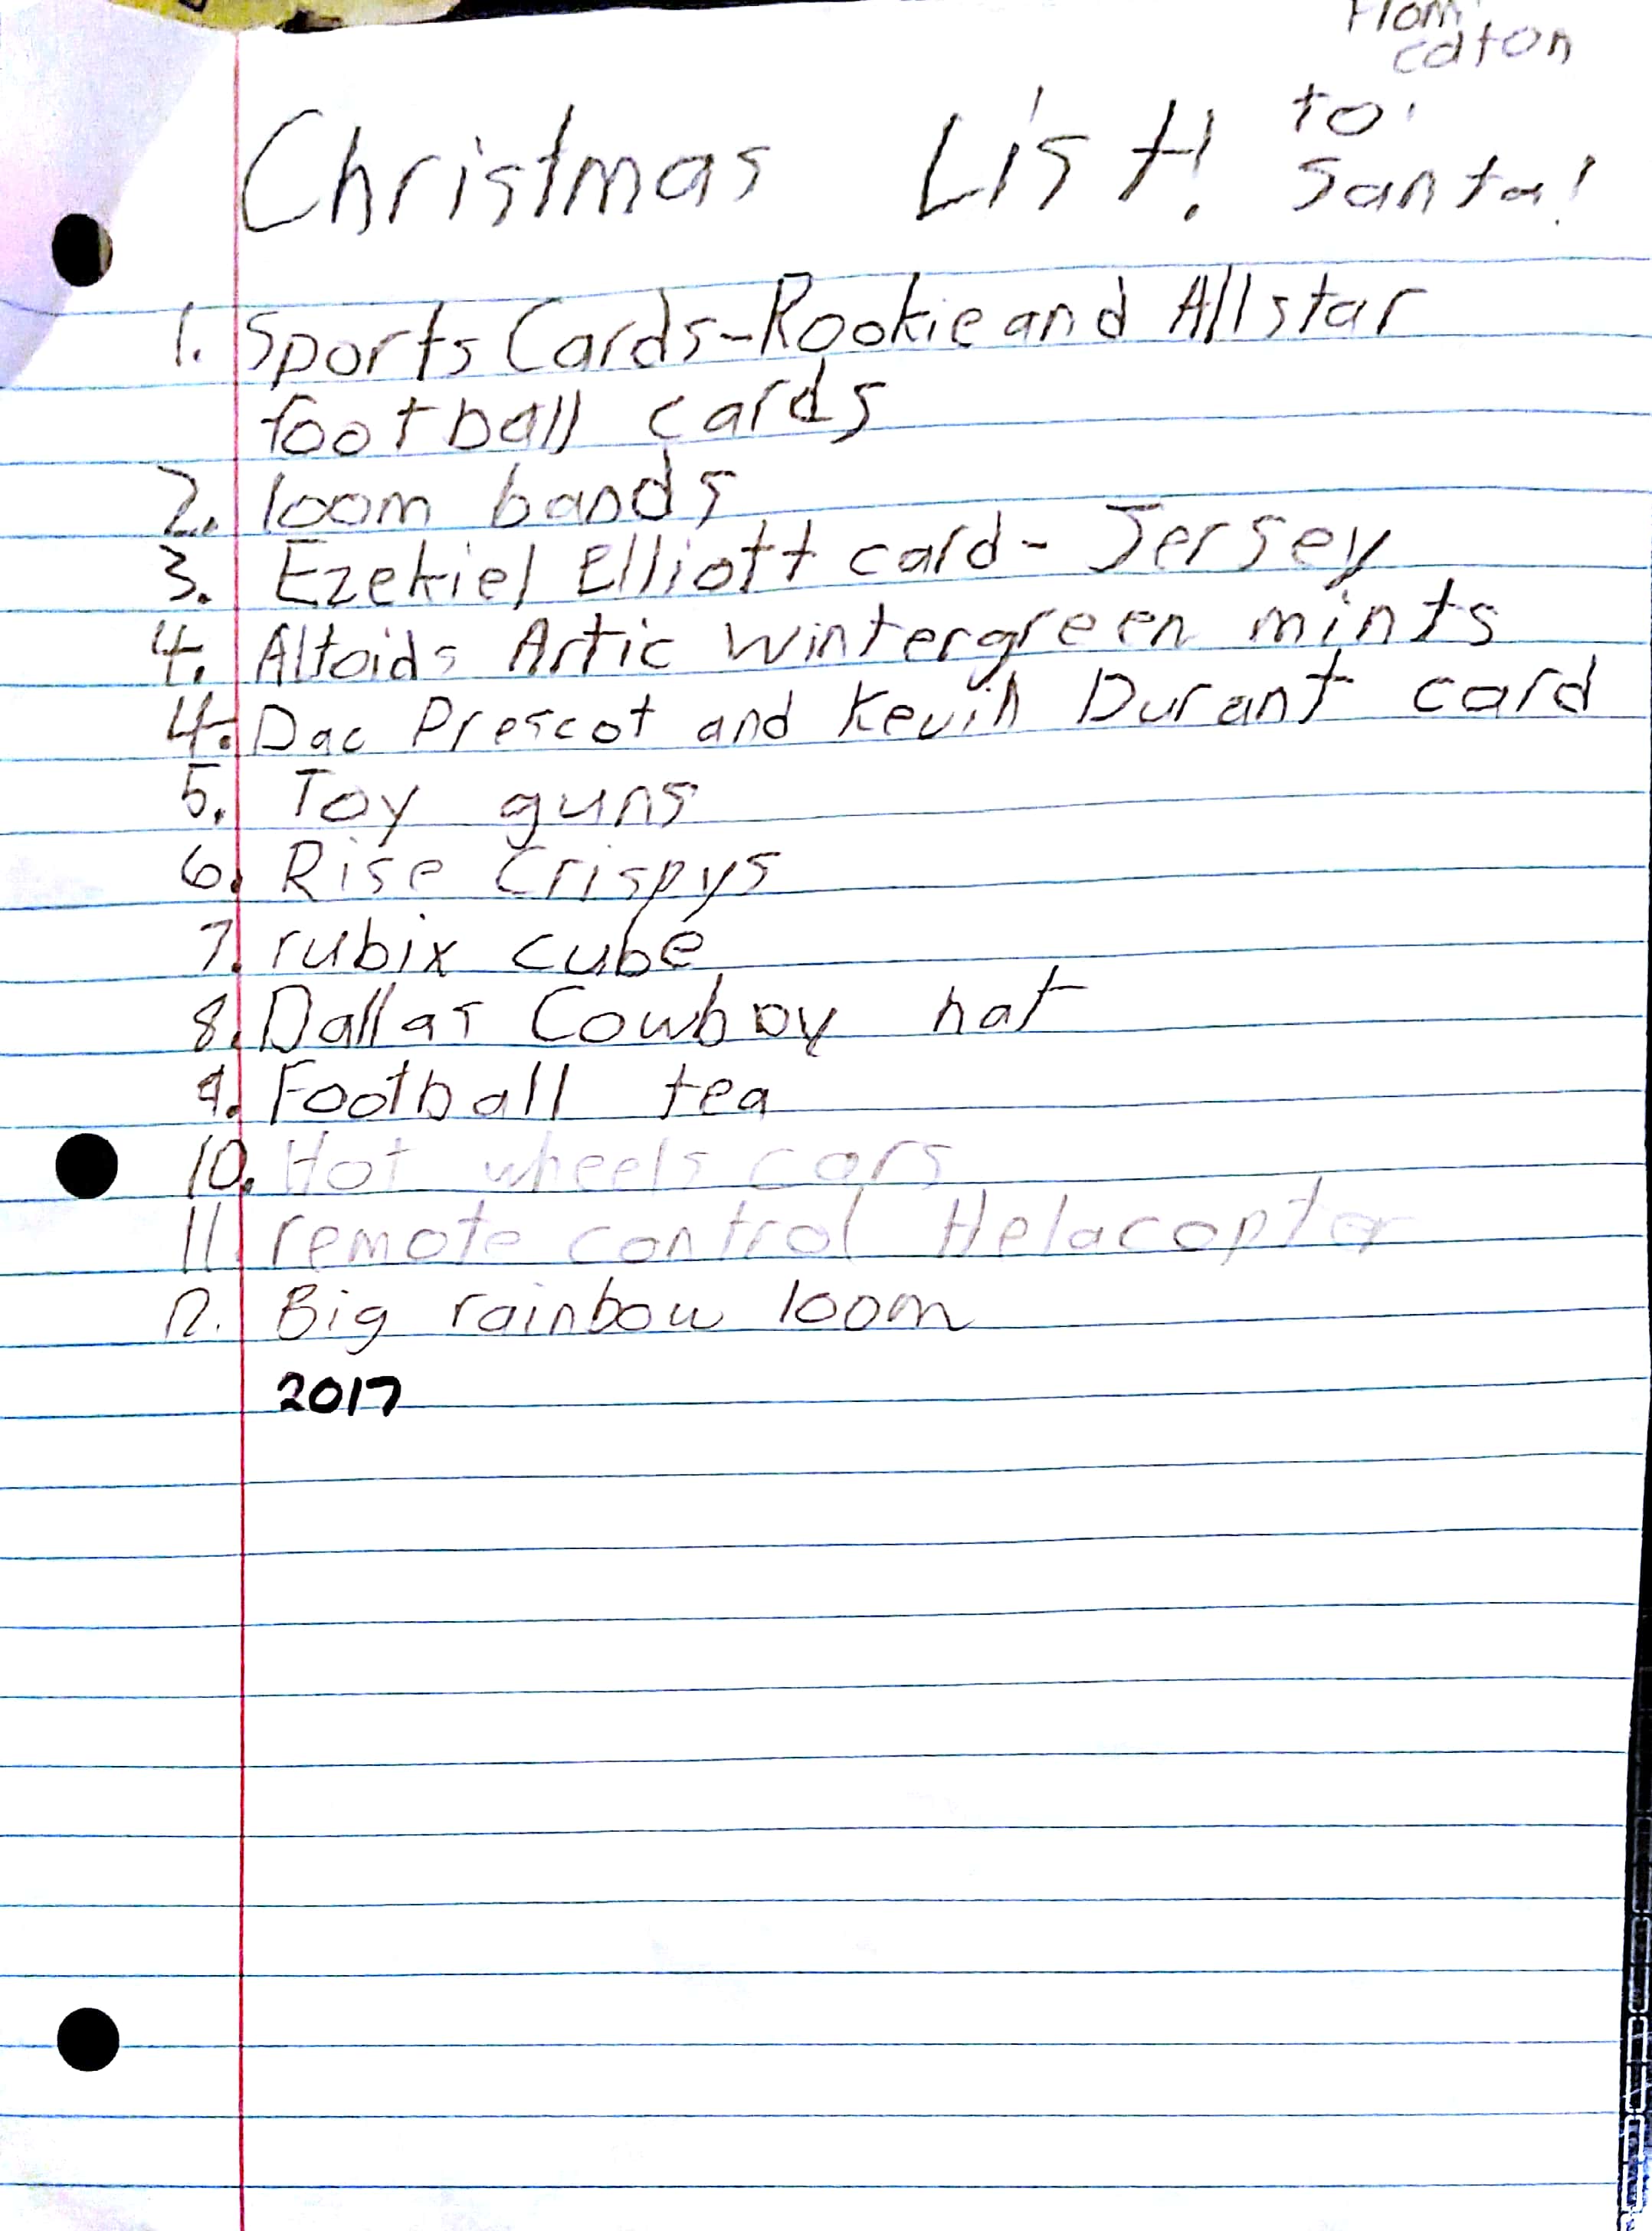 From
caton
to:
Santa!
Christmas List!
1. Sports Cards-Rookie and Allstar
football cards
2. loom bands
3. Ezekiel Elliott card- Jersey
4. Altoids Artic wintergreen mints
4. Dac Prescot and Kevin Durant card
5. Toy guns
6. Rise Crispys
7. rubix cube
8. Dallas Cowboy hat
9. Football tea
10. Hot wheels cars
11. remote control Helacopter
12. Big rainbow loom
2017